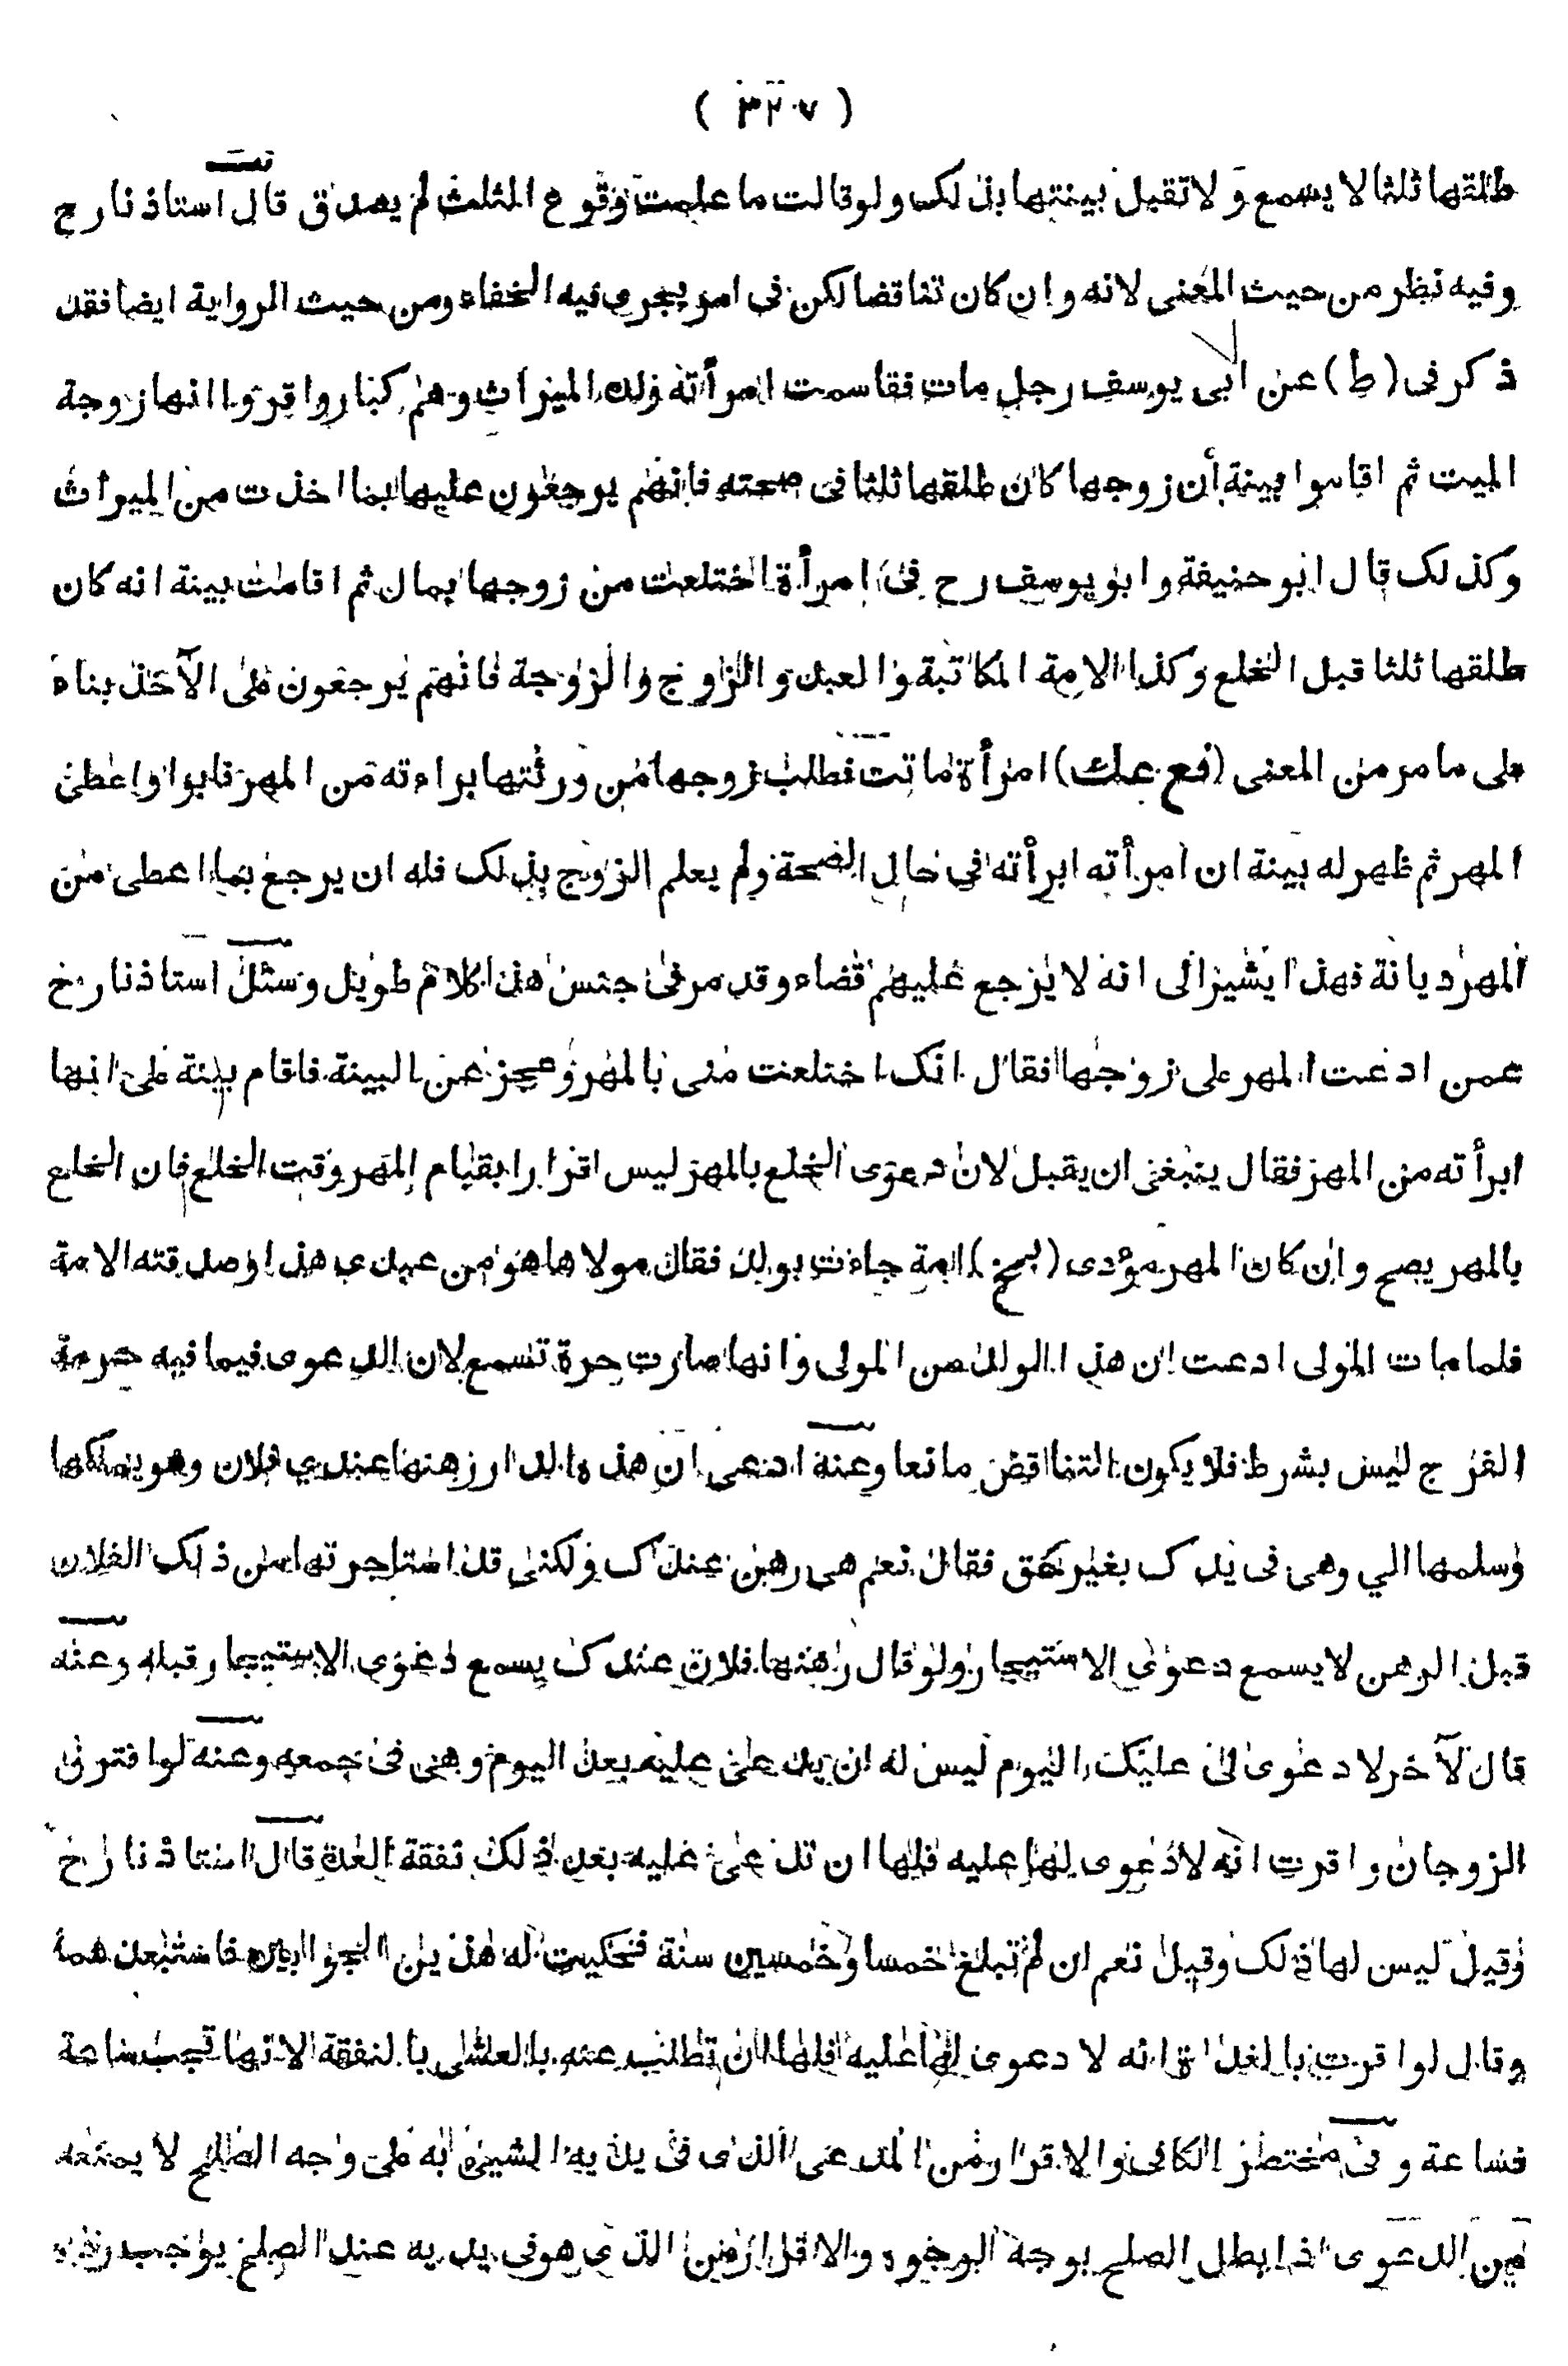 ( ٣٢٠٧ )
طلقها ثلثا لا يسمع و لا تقبل بينتها بذلك ولو قالت ما علمت وقوع الثلث لم يصدق قال استاذنا رح
وفيه نظر من حيث المعنى لانه وان كان تناقضا لكن في امر يجرى فيه الخفاء ومن حيث الرواية ايضا فقد
ذكر في (ط) عن ابى يوسف رجل مات فقاسمت امرأته ولده الميراث وهم كبار واقروا انها زوجة
الميت ثم اقاموا بينة أن زوجها كان طلقها ثلثا في صحته فانهم يرجعون عليها بما اخذت من الميراث
وكذلك قال ابو حنيفة وابو يوسف رح في امرأة اختلعت من زوجها بمال ثم اقامت بينة انه كان
طلقها ثلثا قبل الخلع وكذا الامة المكاتبة والعبد والزوج والزوجة فانهم يرجعون على الآخذ بناء
على ما مر من المعنى (فع عك) امرأة ماتت فطلب زوجها من ورثتها براءته من المهر فابوا واعطى
المهر ثم ظهر له بينة ان امرأته ابرأته في حال الصحة ولم يعلم الزوج بذلك فله ان يرجع بما اعطى من
المهر ديانة فهذا يشير الى انه لا يرجع عليهم قضاء وقد مر في جنس هذا كلام طويل وسئل استاذنا رح
عمن ادعت المهر على زوجها فقال انك اختلعت منى بالمهر وعجز عن البينة فاقام بينة على انها
ابرأته من المهر فقال ينبغى ان يقبل لان دعوى الخلع بالمهر ليس اقرارا بقيام المهر وقت الخلع فان الخلع
بالمهر يصح وان كان المهر مؤدى (بخ) امة جاءت بولد فقال مولاها هو من عبدي هذا وصدقته الامة
فلما مات المولى ادعت ان هذا الولد من المولى وانها صارت حرة تسمع لان الدعوى فيما فيه حرمة
الفرج ليس بشرط فلا يكون التناقض مانعا وعنه ادعى ان هذه الدار رهنها عندي فلان وهو يملكها
وسلمها الي وهى في يدك بغير حق فقال نعم هى رهن عندك ولكنى قد استاجرتها من ذلك الفلان
قبل الرهن لا يسمع دعوى الاستيجار ولو قال راهنها فلان عندك يسمع دعوى الاستيجار قبله وعنه
قال لآخر لا دعوى لى عليك اليوم ليس له ان يدعى عليه بعد اليوم وهى في جمعه وعنه لو افترق
الزوجان واقرت انه لا دعوى لها عليه فلها ان تدعى عليه بعد ذلك نفقة العدة قال استاذنا رح
وقيل ليس لها ذلك وقيل نعم ان لم تبلغ خمسا وخمسين سنة فحكيت له هذين الجوابين فاستبعدهما
وقال لو اقرت بالغداة انه لا دعوى لها عليه فلها ان تطلب عنه بالعشى بالنفقة لانها تجب ساعة
فساعة وفى مختصر الكافى والاقرار من المدعى الذى في يديه الشيئ به على وجه الصلح لا يمنعه
من الدعوى اذا بطل الصلح بوجه الوجوه والاقرار من الذي هو في يديه عند الصلح يوجب رده